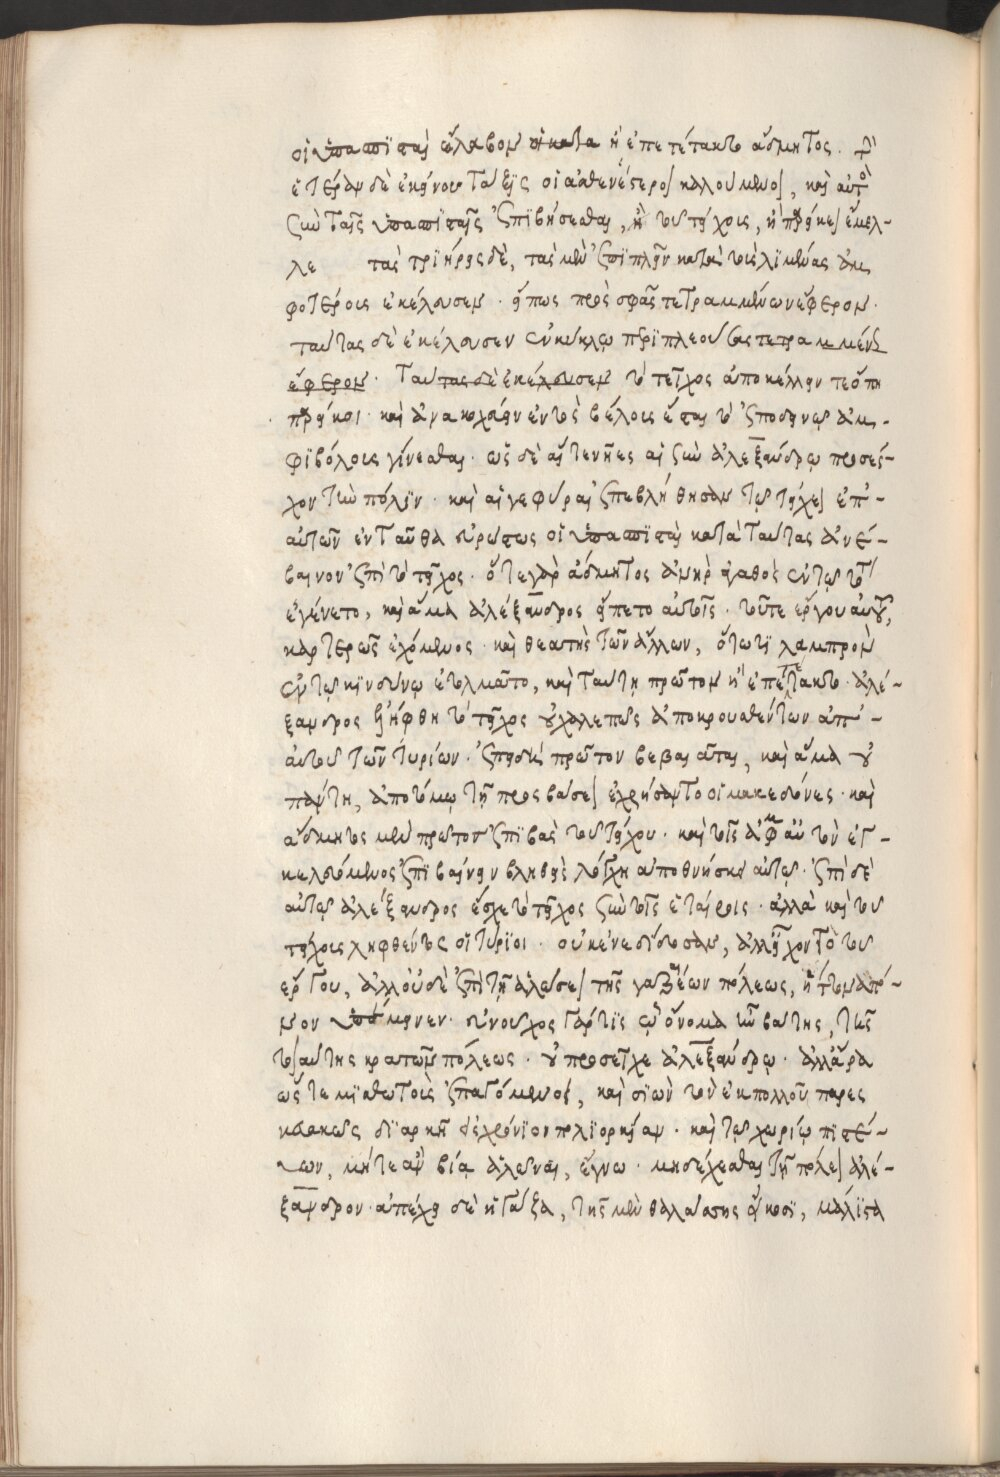 οἱ ὑπασπισταὶ ἔλαβον ᾗ ἐπετέτακτο ἄδμητος. τὴν
ἑτέραν δὲ ἡ κοίνου τάξις οἱ ἀσθενέτεροι καλούμενοι, καὶ αὐτὸς
ξὺν τοῖς ὑπασπισταῖς ἐπιβήσεσθαι, τοῦ τείχους, ᾗ παρείκει ἔμελ-
λε τὰς τριήρεις δὲ, τὰς μὲν ἐπίπλειν κατὰ τοὺς λιμένας ἀμ
φοτέρους ἐκέλευσεν. εἴπως πρὸς σφᾶς τετραμμένων ἔφερον.
ταύτας δὲ ἐκέλευσεν ἐν κύκλῳ περιπλεούσας τετραμμένων
ἔφερον. Ταύτας δὲ ἐκέλευσεν τὸ τεῖχος ἀποκέλλειν τε ὅπη
παρείκοι. καὶ ἀνακωχεύειν ἐντὸς βέλους ἔσται τὸ ἀποδεινῷ ἀμ-
φιβόλους γίνεσθαι. ὡς δὲ αἵ τε νῆες αἱ ξὺν ἀλεξάνδρῳ προσέ-
χον τὴν πόλιν. καὶ αἱ γέφυραι ἐπεβλήθησαν τῷ τείχει ἐπ᾿-
αὐτῶν ἐνταῦθα εὐρώστως οἱ ὑπασπισταὶ κατὰ ταύτας ἀνέ-
βαινον ἐπὶ τὸ τεῖχος. ὅ τε γὰρ ἄδμητος ἀνὴρ ἀγαθὸς ἐν τῷ τότε
ἐγένετο, καὶ ἅμα ἀλέξανδρος εἵπετο αὐτοῖς. τοῦτε ἔργου αὐτοῦ,
καρτερῶς ἐχόμενος. καὶ θεατὴς τῶν ἄλλων, ὅτῳ τι λαμπρὸν
ἐν τῷ κινδύνῳ ἐτολμᾶτο, καὶ ταύτῃ πρῶτον ᾗ ἐπετέτακτο ἀλέ-
ξανδρος ἐλήφθη τὸ τεῖχος οὐ χαλεπῶς ἀποκρουσθέντων ἀπ᾿-
αὐτοῦ τῶν τυρίων. ἐπειδὴ πρῶτον βεβαίᾳ τε, καὶ ἅμα οὐ
πάντῃ, ἀποτόμῳ τῇ προσβάσει ἐχρήσαντο οἱ μακεδόνες. καὶ
ἄδμητος μὲν πρῶτος ἐπιβὰς τοῦ τείχου. καὶ τοῖς ἀμφ᾿ αὑτὸν ἐγ-
κελευόμενος ἐπιβαίνειν βληθεὶς λόγχῃ ἀποθνήσκει αὐτοῦ. ἐπὶ δὲ
αὐτῷ ἀλέξανδρος ἔσχε τὸ τεῖχος ξὺν τοῖς ἑταίροις. ἀλλὰ καὶ τοῦ
τείχους ληφθέντος οἱ τύριοι. οὐκ ἐνεδίδοσαν, ἀλλ᾿ εἴχοντο τοῦ
ἔργου, ἀλλ᾿ οὐδὲ ἐπὶ τῇ ἁλώσει τῆς γαζαίων πόλεως,
μον ὑπέμεινεν. εὐνοῦχος βάτις ᾧ ὄνομα ἦν βάτης, τῆς
ταύτης κρατῶν πόλεως. οὐ προσεῖχε ἀλεξάνδρῳ. ἀλλ᾿ ἄρα
ὥς τε μισθωτοὺς ἐπαγόμενος, καὶ σῖτον ἐκ πολλοῦ παρεσ
κευακὼς διαρκῆ ἐς χρόνιον πολιορκίαν. καὶ τῷ χωρίῳ πιστεύ-
ων, μήτε ἂν βίᾳ ἁλῶναι, ἔγνω. μὴ δέχεσθαι τῇ πόλει ἀλέ-
ξανδρον. ἀπέχει δὲ ἡ γάζα, τῆς μὲν θαλάσσης εἴκοσι, μάλιστα